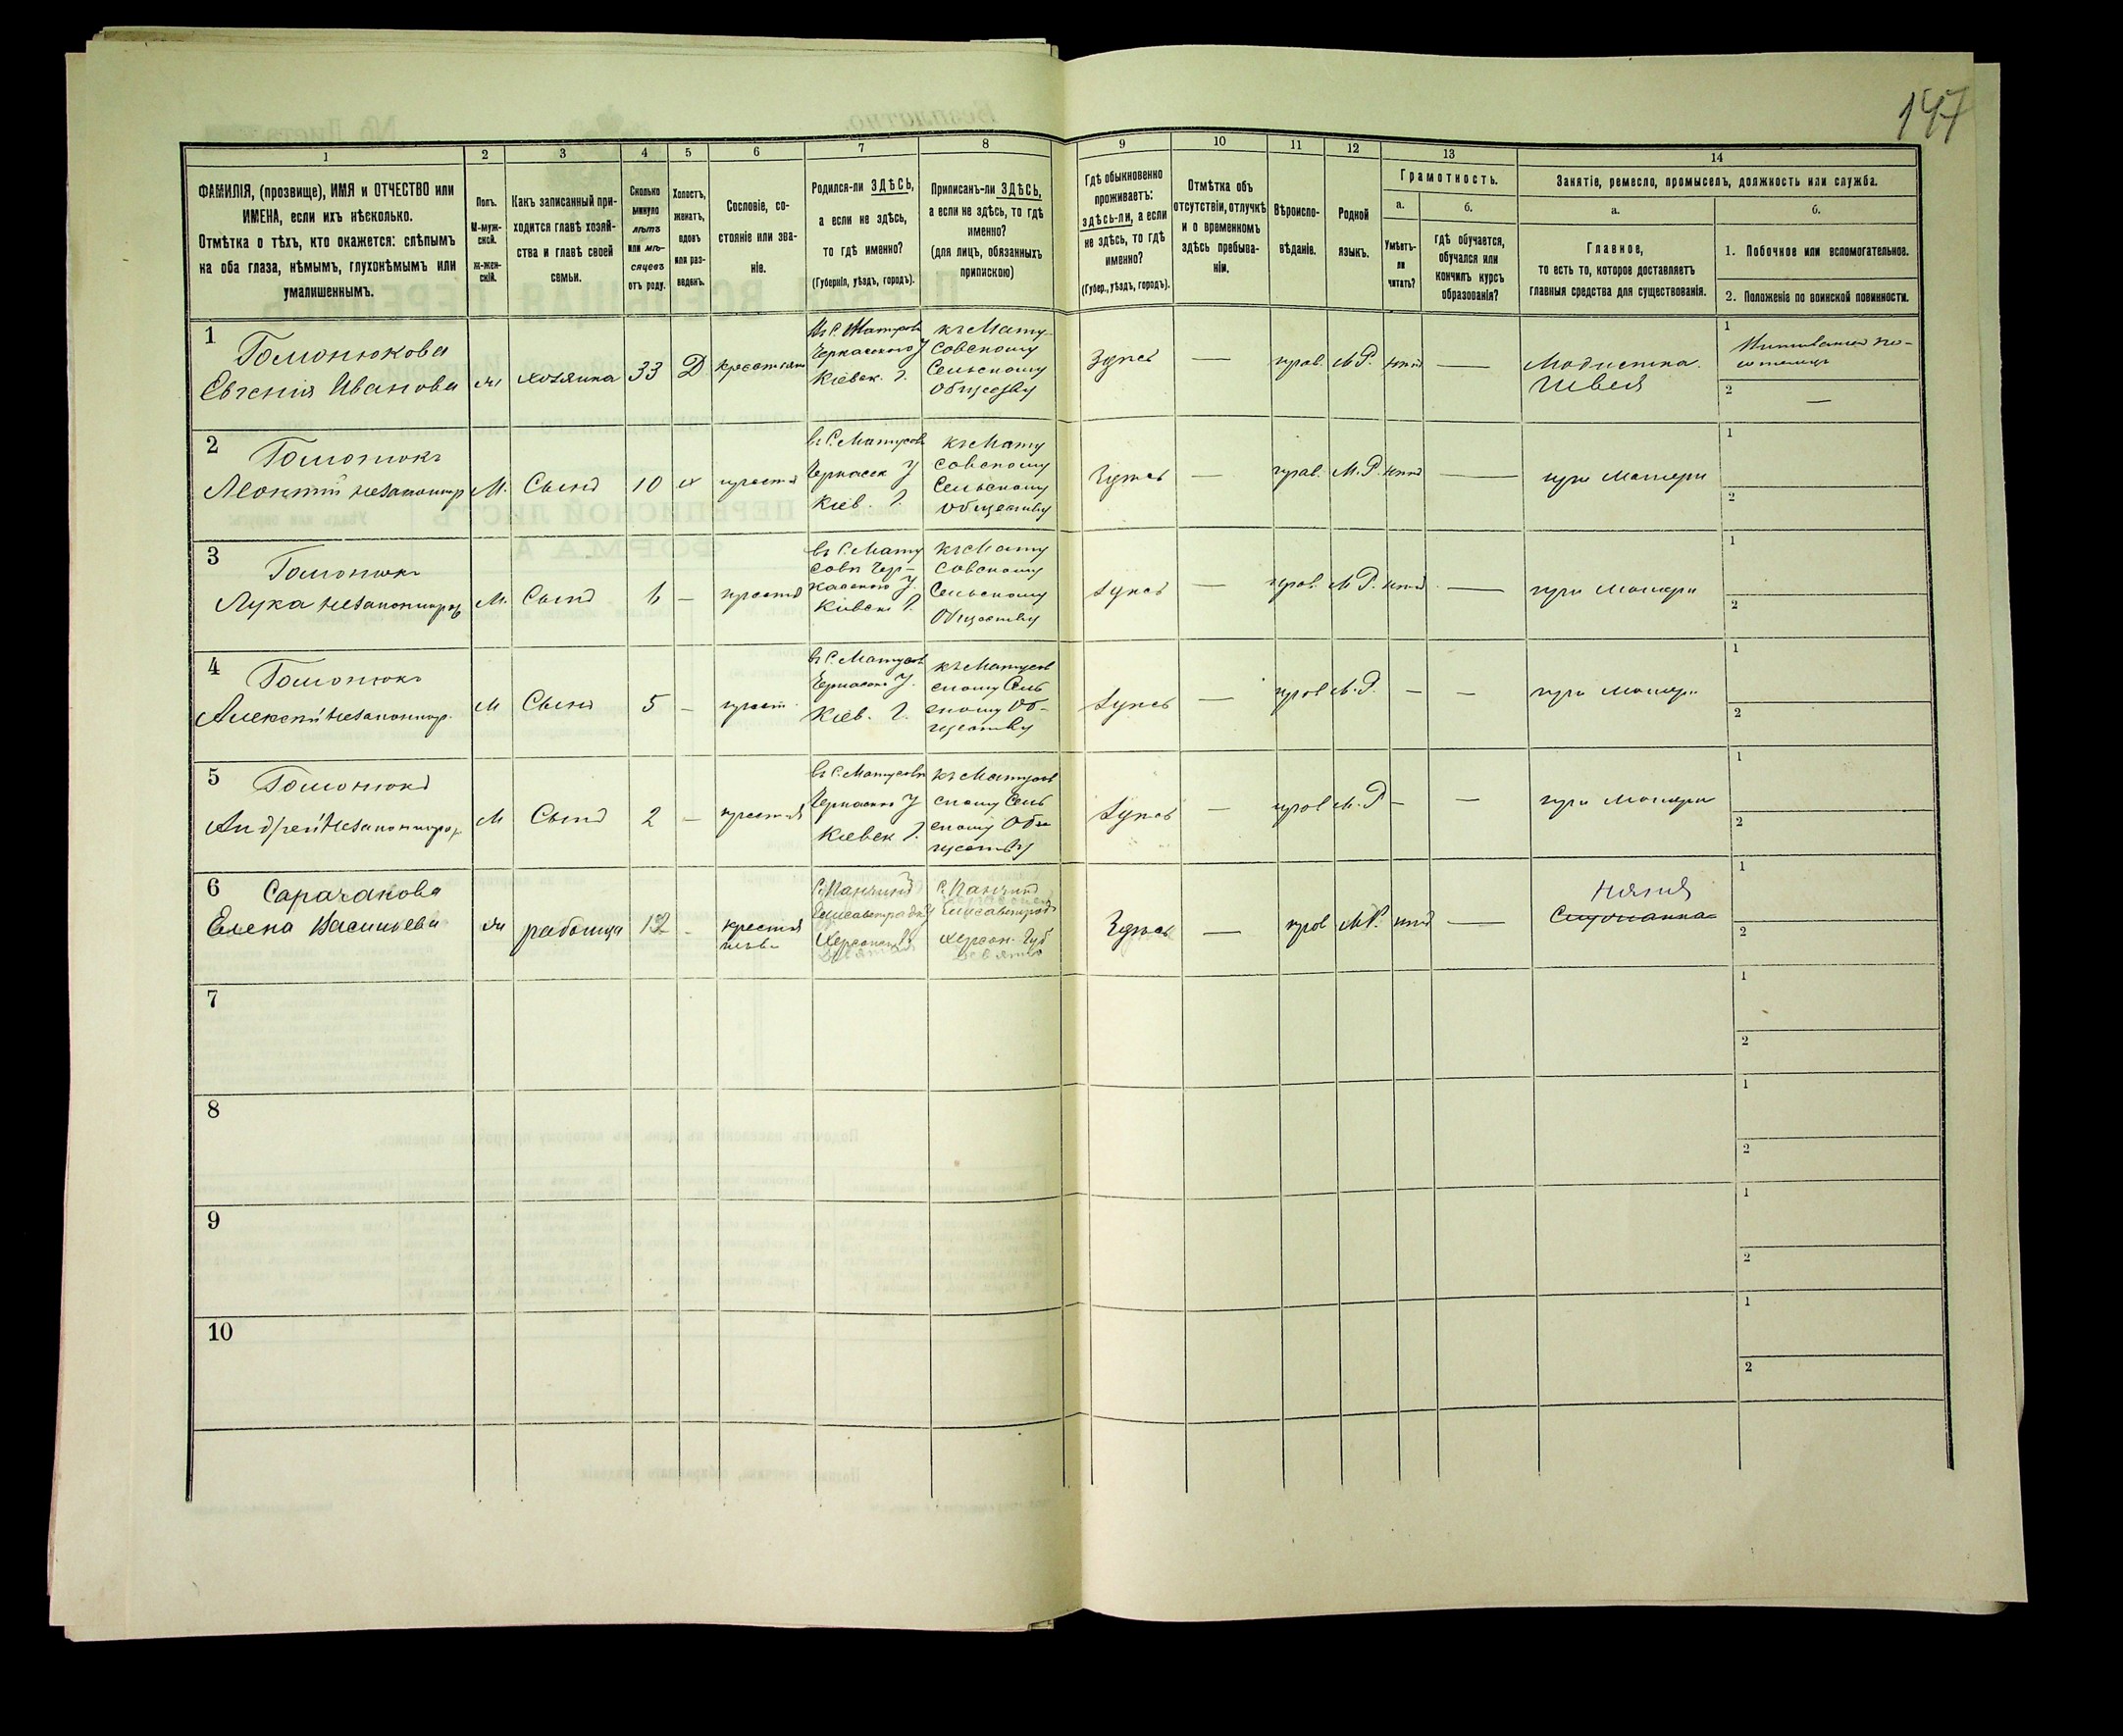 147
1
2
3
4
5
6
7
8
9
10
11
12
13
14
ФАМИЛІЯ, (прозвище), ИМЯ и ОТЧЕСТВО или
ИМЕНА, если ихъ нѣсколько.
Отмѣтка о тѣхъ, кто окажется: слѣпымъ
на оба глаза, нѣмымъ, глухонѣмымъ или
умалишеннымъ.
Полъ.
М-муж-
ской.
ж-жен-
скій.
Какъ записанный при-
ходится главѣ хозяй-
ства и главѣ своей
семьи.
Сколько
минуло
лѣтъ
или мѣ-
сяцевъ
отъ роду.
Холостъ,
женатъ,
вдовъ
или раз-
веденъ.
Сословіе, со-
стояніе или зва-
ніе.
Родился-ли ЗДѢСЬ,
а если не здѣсь,
то гдѣ именно?
(Губернія, уѣздъ, городъ).
Приписанъ-ли ЗДѢСЬ,
а если не здѣсь, то гдѣ
именно?
(для лицъ, обязанныхъ
припискою)
Гдѣ обыкновенно
проживаетъ:
здѣсь-ли, а если
не здѣсь, то гдѣ
именно?
(Губер., уѣздъ, городъ).
Отмѣтка объ
отсутствіи, отлучкѣ
и о временномъ
здѣсь пребыва-
ніи.
Вѣроиспо-
вѣданіе.
Родной
языкъ.
Грамотность.
а.
Умѣетъ-
ли
читать?
б.
гдѣ обучается,
обучался или
кончилъ курсъ
образованія?
Занятіе, ремесло, промыселъ, должность или служба.
а.
Главное,
то есть то, которое доставляетъ
главныя средства для существованія.
б.
1. Побочное или вспомогательное.
2. Положеніе по воинской повинности.
1
Гомонюкова
Евгенія Иванова
хозяйка
33
Д
Черкасского У
Кіевск. Г.
къ Мату-
совскому
Сельскому
Обществу
Здѣсь
—
прав.
М Р.
нѣтъ
—
Модистка.
Швея
1
2
—
2
Гомонюкъ
Леонтій незаконнор
М.
Сынъ
10
въ С. Матусовѣ
Черкасск У
Кіев. Г.
къ Мату
совскому
Сельскому
обществу
Здѣсь
—
прав.
М. Р.
нѣтъ
—
при матери
1
2
3
Гомонюкъ
Лука незаконнор
М.
Сынъ
—
въ С. Мату
совѣ Чер-
касского У
Кіевск Г.
къ Мату
совскому
Сельскому
Обществу
Здѣсь
—
прав.
М Р.
нѣтъ
—
при матери
1
2
4
Гомонюкъ
Алексѣй незаконнор.
М
Сынъ
5
—
крест.
въ С. Матусовѣ
Черкасск У.
Кіев. Г.
къ Матусов
скому Сель
скому Об-
ществу
Здѣсь
—
прав
М. Р.
—
—
при матери
1
2
5
Гомонюкъ
Андрей незаконнор
М
Сынъ
2
—
въ С. Матусовѣ
Черкасск У
Кіевск Г.
къ Матусов
скому Сель
скому Об-
ществу
Здѣсь
—
прав
М. Р
—
—
при матери
1
2
6
Сарачакова
Елена Васильева
работница
12
-
Елисаветград У
Херсонск Г.
Елисаветград
Херсон. Губ
Здѣсь
—
прав
М Р.
нѣтъ
—
няня
1
2
7
1
2
8
1
2
9
1
2
10
1
2